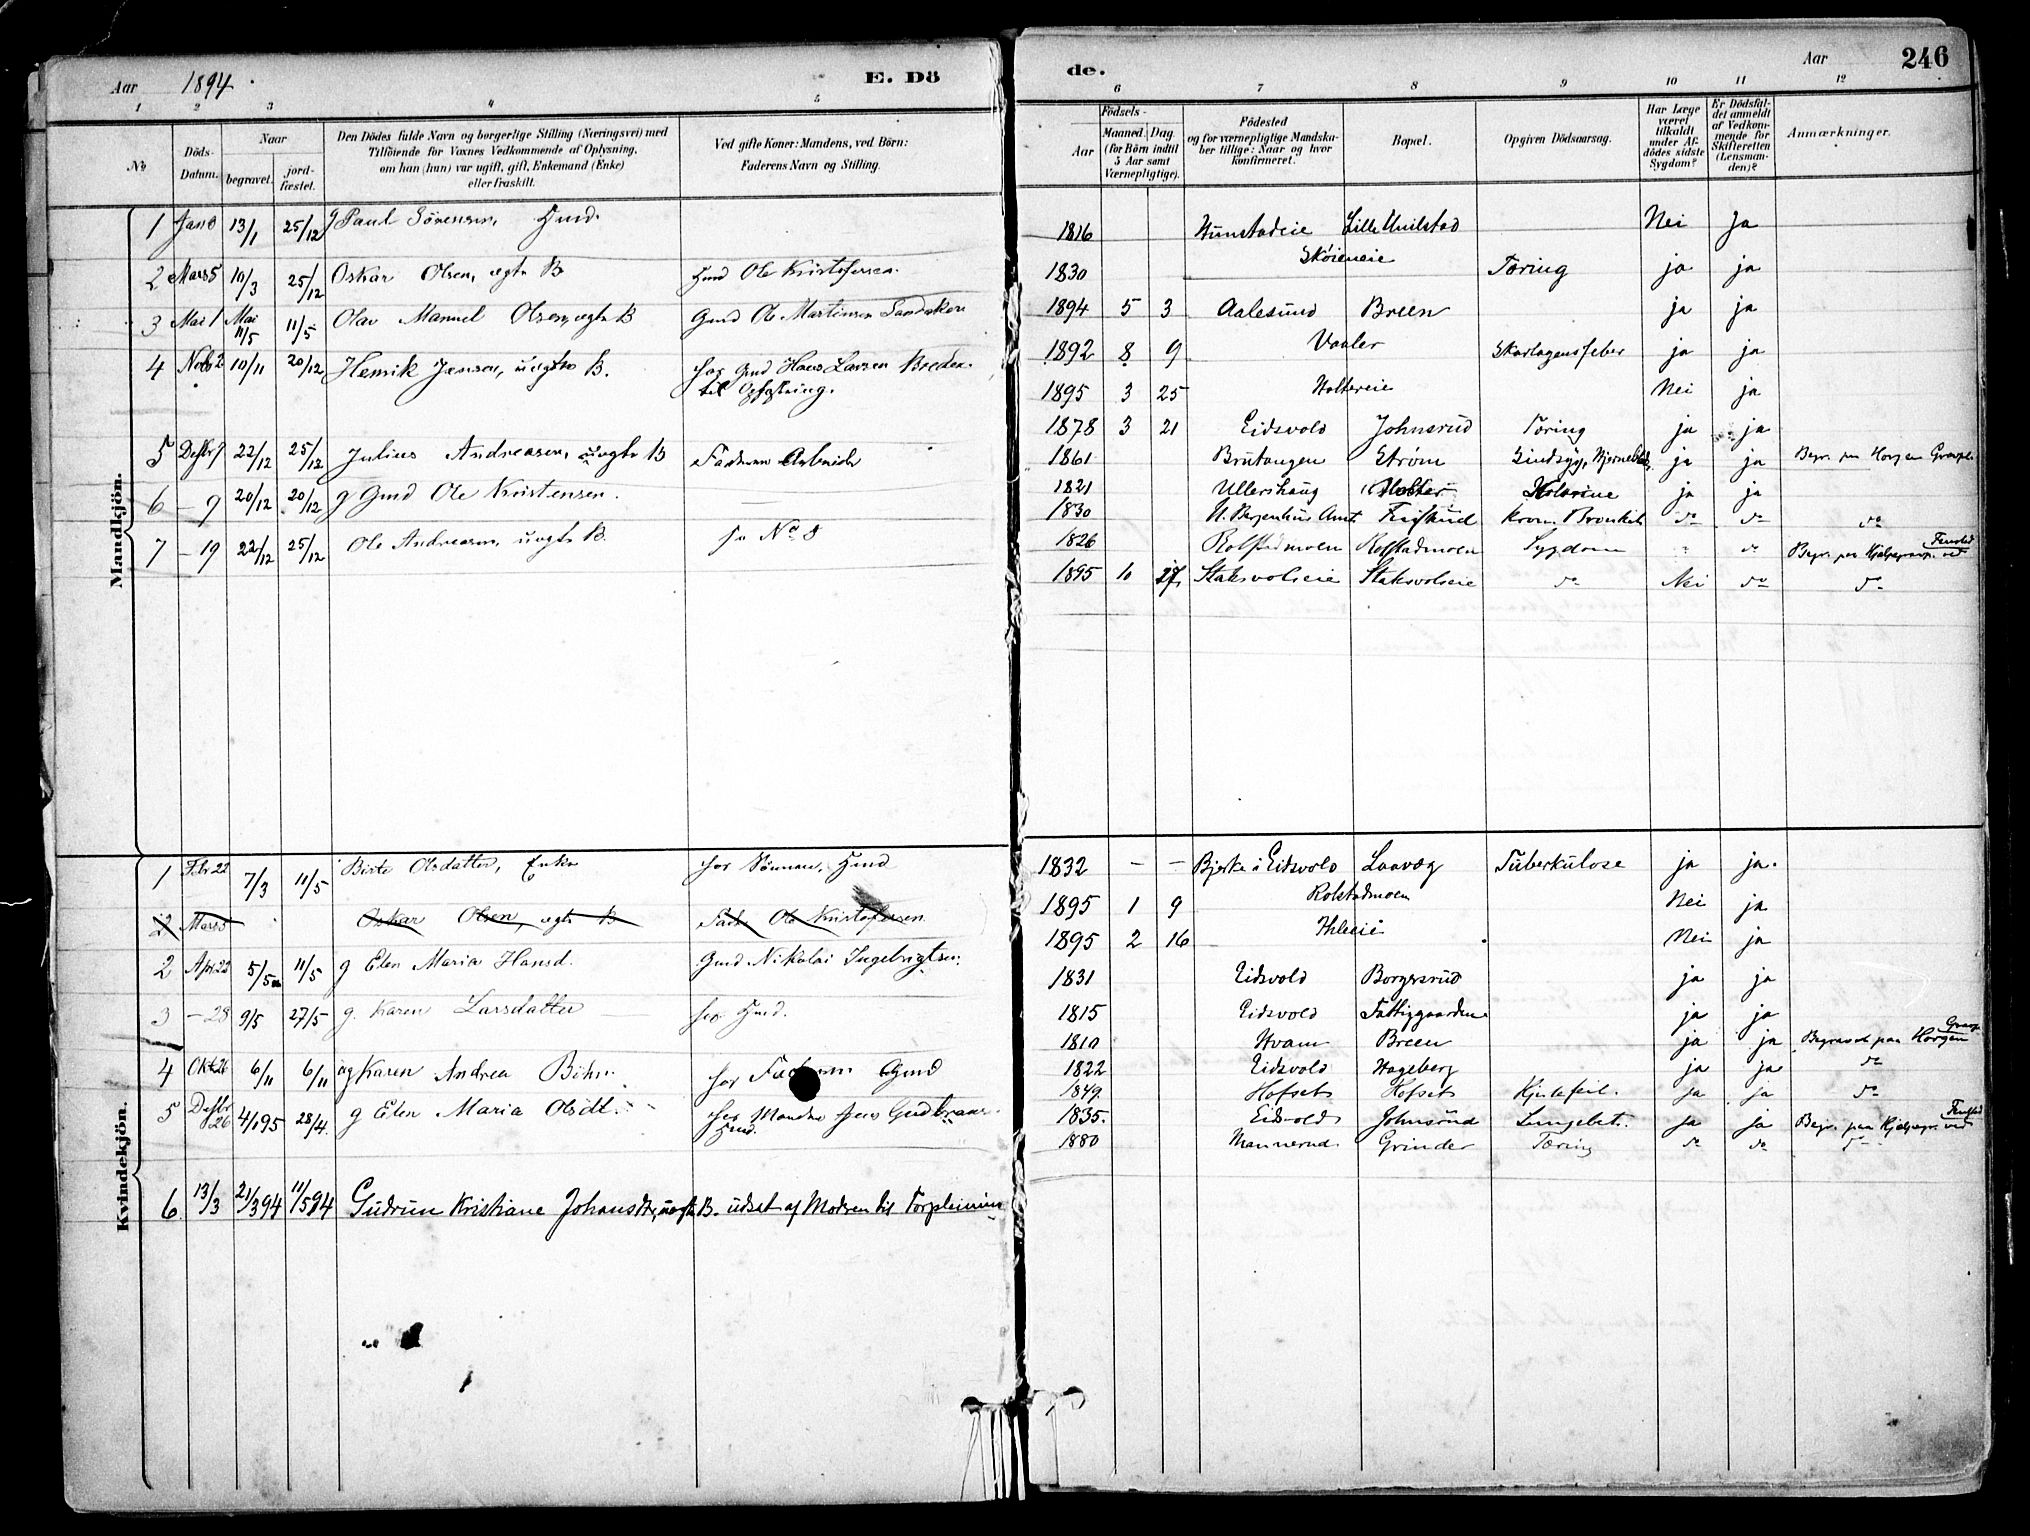 Aar 1894.
E. Dö
1 2 3 4 5
No
Döds-Datum.
Naar
begravet.
jord-fæstet.
Den Dödes fulde Navn og borgerlige Stilling (Næringsvei) med
Tilföiende for Voxnes Vedkommende af Oplysning,
om han (hun) var ugift, gift, Enkemand (Enke)
eller fraskilt.
Ved gifte Koner: Mandens, ved Börn:
Faderens Navn og Stilling.
Mandkjön.
1 Jan 8 13/1 25/12 g Paul Sörensen, Gmd.
2 Mars 5 10/3 25/12 Oskar Olsen, ægte B Gmd Ole Kristofersen.
3 Mai 1 Mai 11/5 11/5 Olav Manuel Olsen, ægte B Gmd Ole Martinsen
4 Novb 2 10/11 20/12 Henrik Jensen, uægte B. hos Gmd Hans Larsen
til Opfostring.
5 Desbr 7 22/12 25/12 Julius Andreasen, uægte B Faderen Arbeider
6 - 9 20/12 20/12 g Gmd Ole Kristensen.
7 - 19 22/12 25/12 Ole Andreasen, uægte B. se No 8
Kvindekjön.
1 Febr 22 7/3 11/5 Birte Olsdatter, Enke hos Sönnen, Gmd
2 Mars 5 Oskar Olsen, ægte B Fader Ole Kristofersen
2 Apr 22 5/5 11/5 g Elen Maria Hansd. Gmd Nikolai Ingebrigtsen
3 - 28 9/5 27/5 g. Karen Larsdatter hos Gmd.
4 Okt 26 6/11 6/11 ug Karen Andrea hos Faderen Gmd
5 Desbr 26 4/1 95 28/4. g Elen Maria Olsdt. hos Manden Jens
Gmd.
6 13/3 21/3 94 11/5 94 Gudrun Kristiane Johansdtr, uægte B. udsat af Modren til Forpleining
de.
Aar 246
6 7 8 9 10 11 12
Födsels-
Aar
Maaned. Dag
(for Börn indtil
5 Aar samt
Værnepligtige).
Födested
og for værnepligtige Mandska-
ber tillige: Naar og hvor
konfirmeret.
Bopæl.
Opgiven Dödsaarsag.
Har Læge
været
tilkaldt
under Af-
dödes sidste
Sygdom?
Er Dödsfal-
det anmeldt
af Vedkom-
mende for
Skifteretten
(Lensman-
den)?
Anmærkninger.
1816 Hunstadeie Lille Nei Ja
1830 Skøieneie Tæring ja ja
1894 5 3 Aalesund Breen ja ja
1892 8 9 Vaaler Skarlagensfeber ja ja
1895 3 25 Holtereie Nei ja
1878 3 21 Eidsvold Johnsrud Tæring ja ja
1861 Brutangen Strøm Sindsyg, ja ja Begr. paa Horgen Gravpl.
1821 Ullershaug ja ja
1830 N. Bergenhus Amt Kron. Bronkit do do do
1826 Rolstadmoen Rolstadmoen Sygdom " do Begr. paa ved
1895 10 27 Staksvolseie Staksvolseie do Nei do do
1832 - - Bjerke i Eidsvold Laavæg Tuberkulose ja ja.
1895 1 9 Rolstadmoen Nei ja
1895 2 16 Ihleeie Nei ja
1831 Eidsvold Borgersrud ja ja
1815 Eidsvold Fattiggaarden ja ja
1810 Hvam Breen ja ja Begravet paa Horgen Gravpl
1822 Eidsvold Hageberg ja ja do
1849 Hofset Hofset Hjertefeil. ja ja do
1835. Eidsvold Johnsrud Lungebet. ja ja Begr. paa ved
1880 Mannerud Grinder Tæring do do do